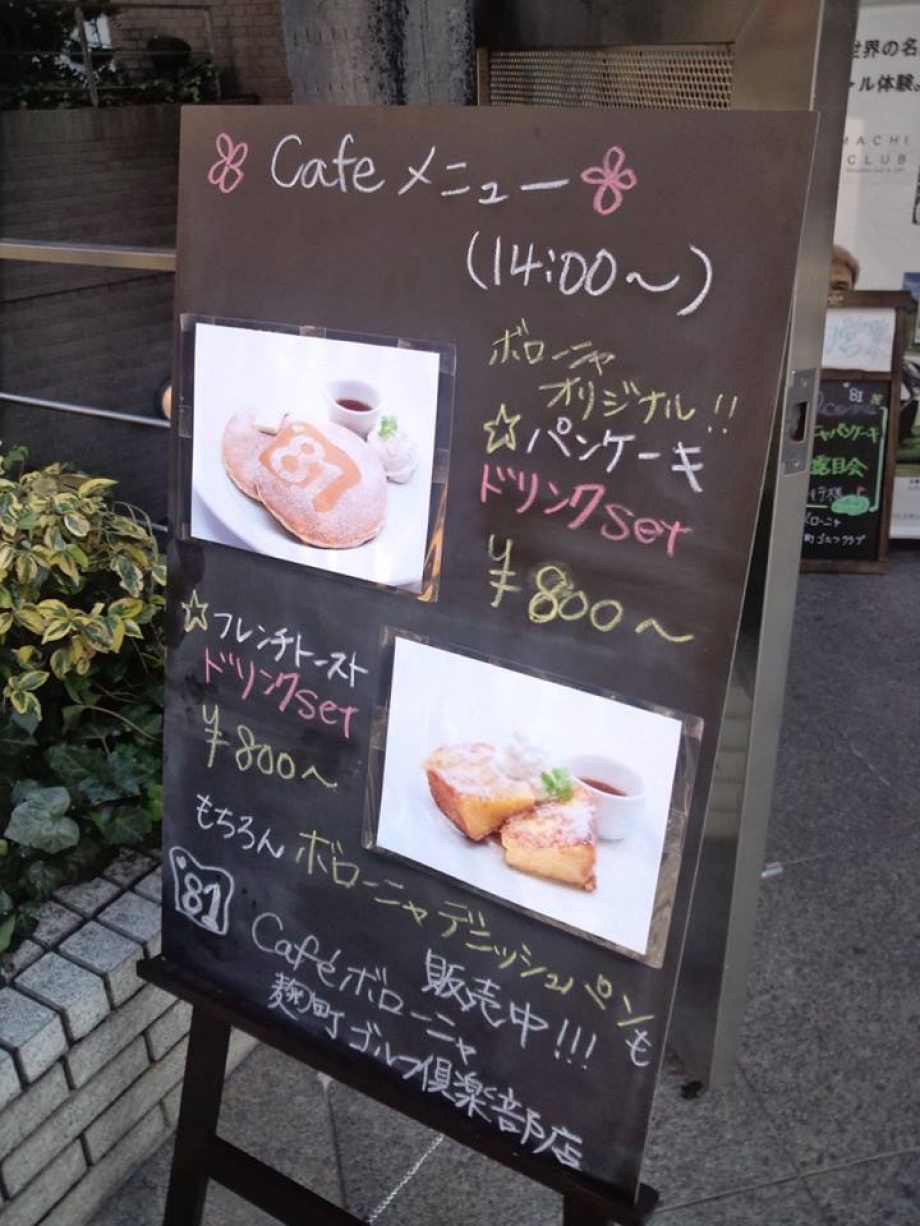 Cafe メニュー
(14:00〜)
ボローニャ
オリジナル!!
☆パンケーキ
ドリンクset
¥800〜
81
☆フレンチトースト
ドリンクset
¥800〜
もちろん ボローニャデニッシュパンも
販売中!!!
'81
Caféボローニャ
麹町ゴルフ倶楽部店
世界の名
ル体験。
MACHI
CLUB
'81
ャパンケーキ
露目会
ボローニャ
町ゴルフクラブ